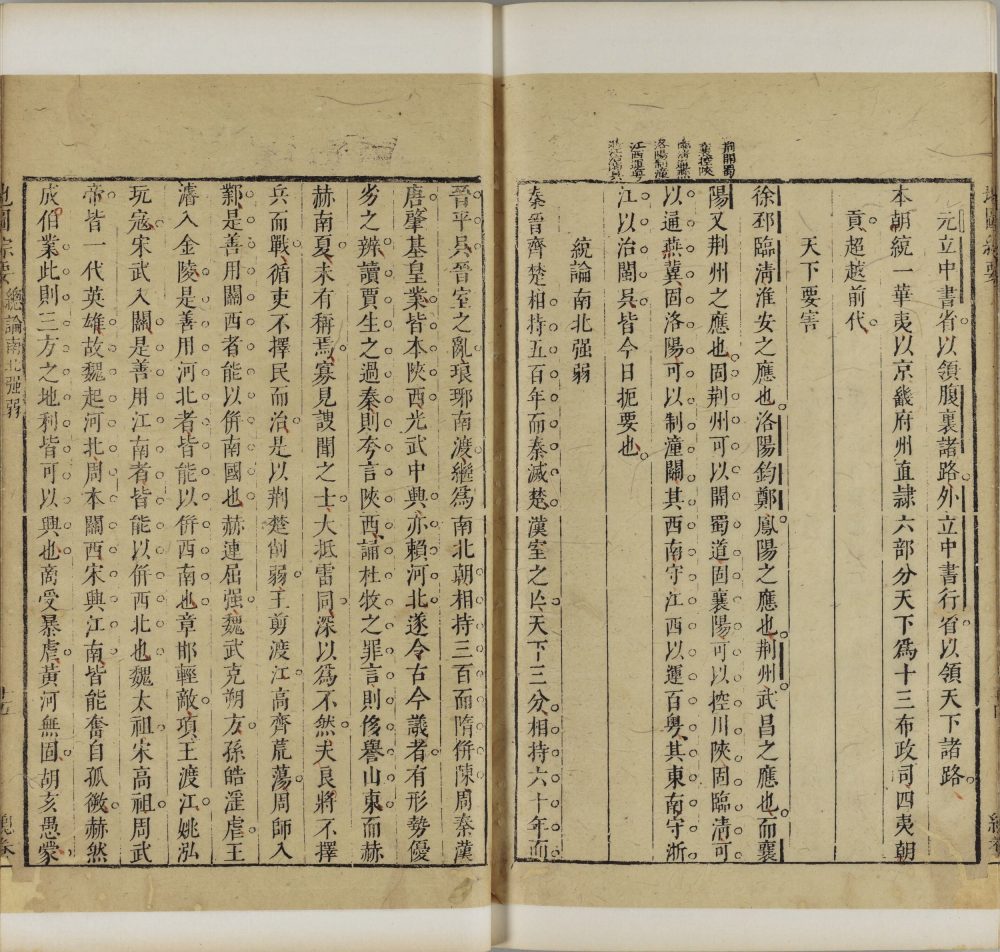 荆開蜀
襄控陝
臨清通燕
洛陽制潼
江西運粵
元立中書省以領腹裏諸路外立中書行省以領天下諸路
本朝統一華夷以京畿府州直隷六部分天下爲十三布政司四夷朝
貢超越前代
天下要害
徐邳臨清淮安之應也洛陽鈞鄭鳳陽之應也荆州武昌之應也而襄
陽又荆州之應也固荆州可以開蜀道固襄陽可以控川陝固臨清可
以通燕冀固洛陽可以制潼關其西南守江西以運百粤其東南守浙
江以治閩吳皆今日扼要也
統論南北强弱
秦晉齊楚相持五百年而秦滅楚漢室之亾天下三分相持六十年而
晉平吳晉室之亂琅琊南渡繼爲南北朝相持三百而隋併陳周秦漢
唐肇基皇業皆本陝西光武中興亦賴河北遂令古今議者有形勢優
劣之辨讀賈生之過秦則夸言陝西誦杜牧之罪言則侈譽山東而赫
赫南夏未有稱焉寡見謏聞之士大抵雷同深以爲不然夫良將不擇
兵而戰循吏不擇民而治是以荆楚削弱王剪渡江高齊荒蕩周師入
鄴是善用關西者能以併南國也赫連屈强魏武克朔方孫皓淫虐王
濬入金陵是善用河北者皆能以併西南也章邯輕敵項王渡江姚泓
玩寇宋武入關是善用江南者皆能以併西北也魏太祖宋高祖周武
帝皆一代英雄故魏起河北周本關西宋興江南皆能奮自孤微赫然
成伯業此則三方之地利皆可以興也商受暴虐黃河無固胡亥愚蒙
地圖綜要
總論南北强弱
總卷